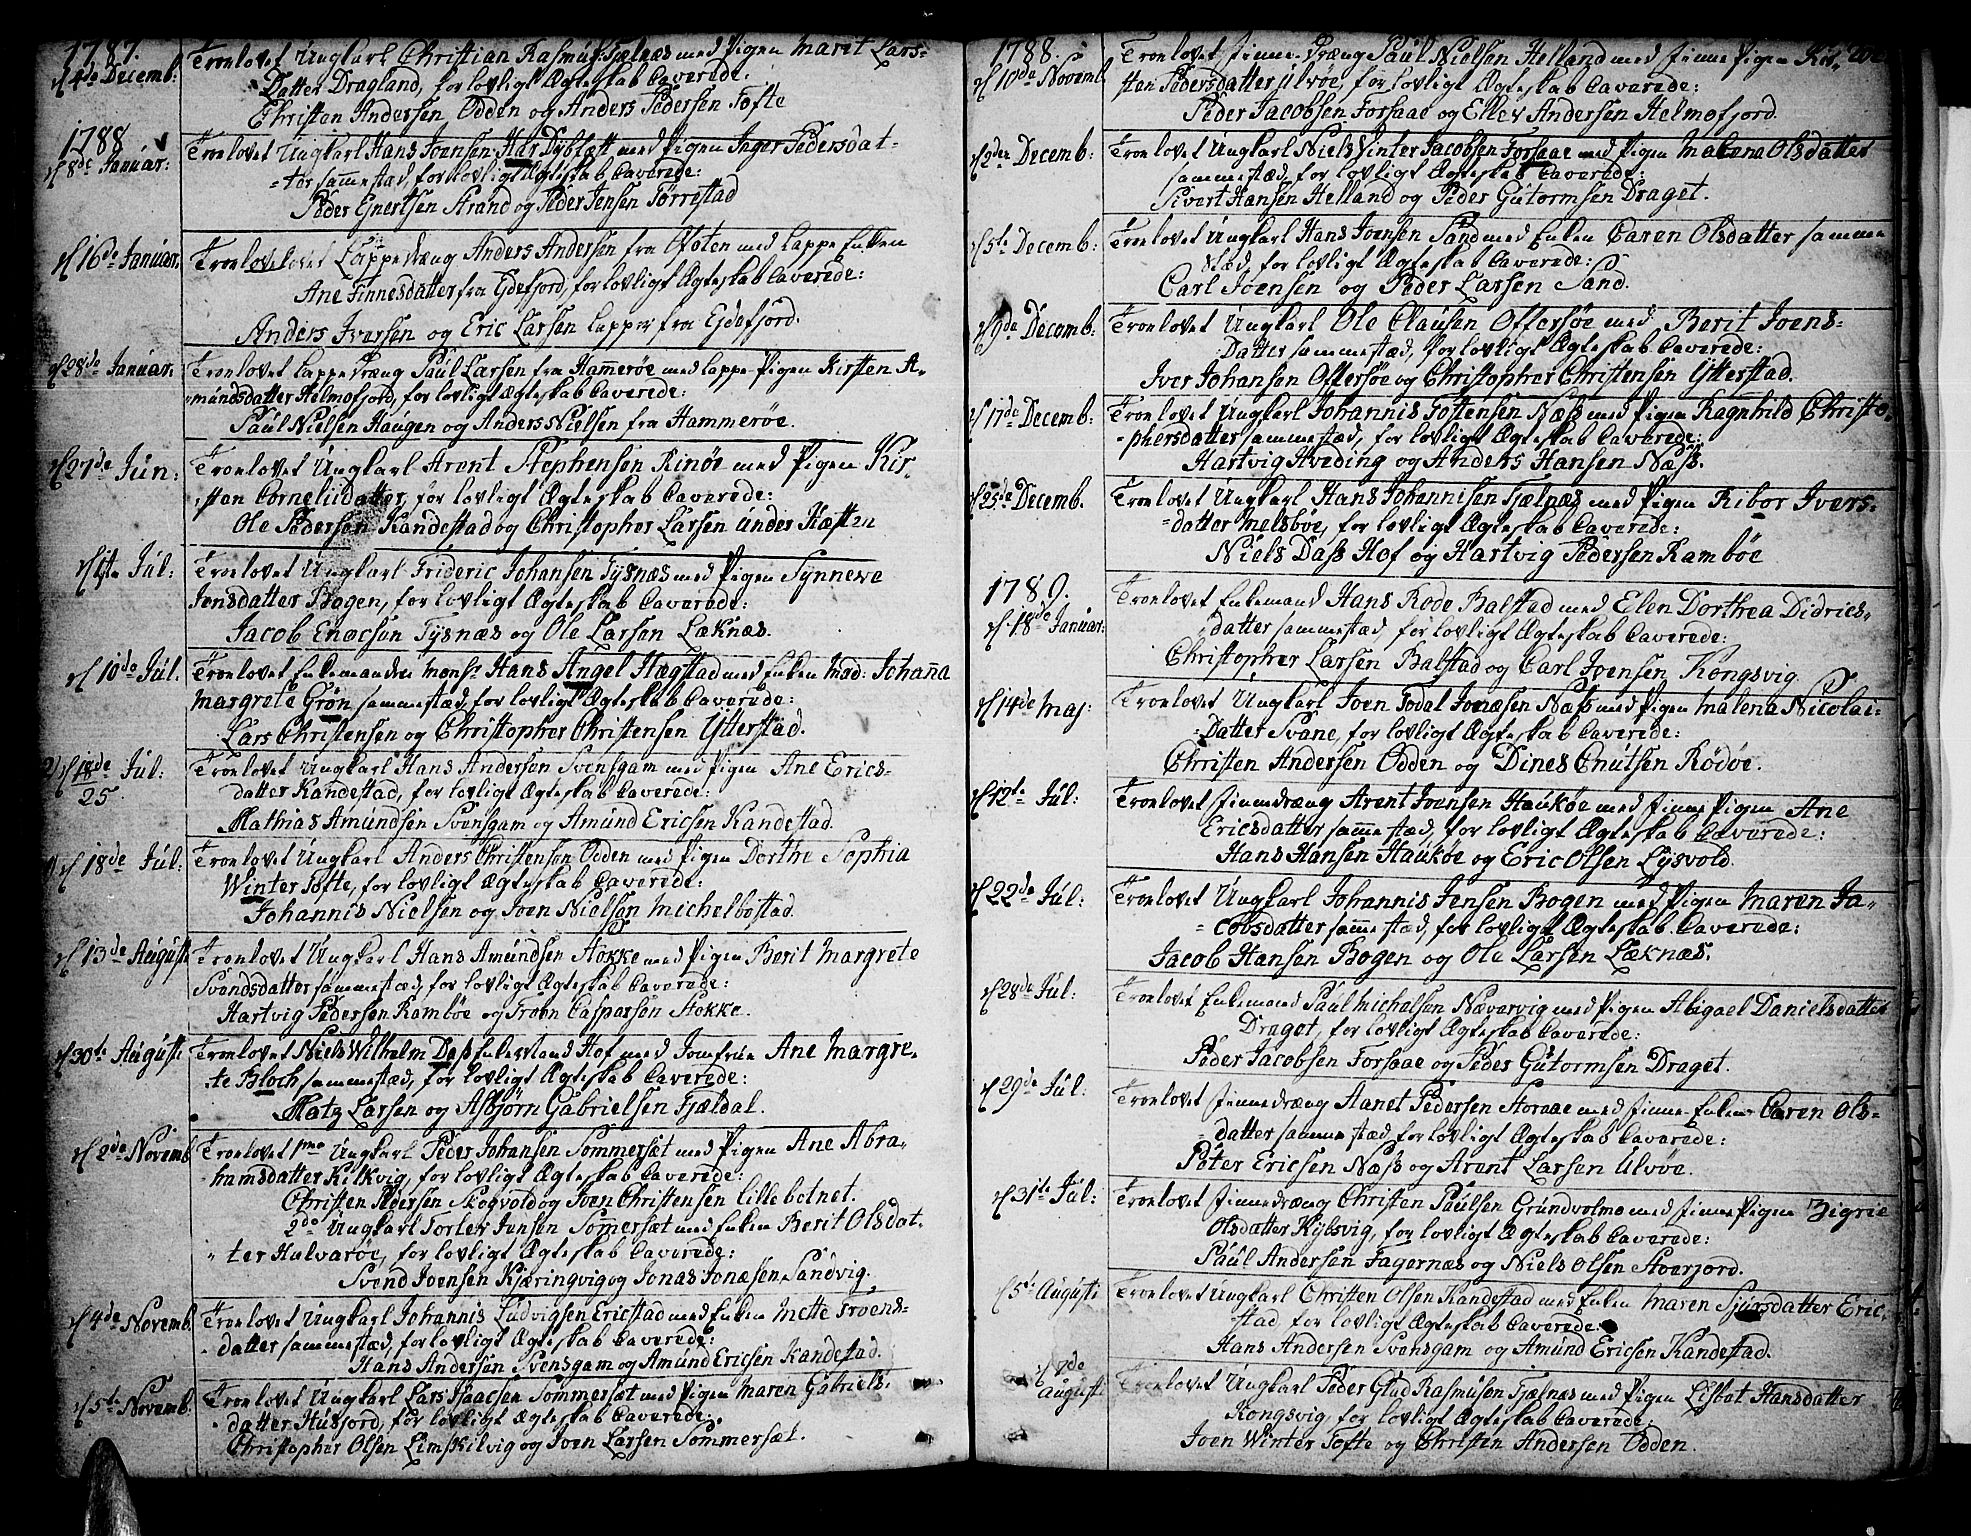 1787.
d 4de Decemb: Troelovet Ungkarl Christian Rasmus: Fjelnæs med Pigen Marit Lars-
Datter Dragland, for lovligt Ægteskab Caverede:
Christen Andersen Odden og Anders Pedersen Tofte
1788
d 8de Januar: Troelovet Ungkarl Hans Joensen Herr Dybtætt med Pigen Inger Pedersdat-
=ter sam̅estad, for lovligt Ægteskab Caverede:
Peder Enertsen Strand og Peder Jensen Torrestad
d 16de Januar: Troelovelovet Lappedræng Anders Andersen fra Ofoten med Lappe Enken
Ane Finnesdatter fra Eidefjord, for lovligt Ægteskab Caverede:
Anders Iversen og Eric Larsen Lapper fra Ejdefjord.
d 28de Januar: Troelovet Lappe Dræng Paul Larsen fra Ham̅erøe med Lappe Pigen Kirsten A-
mundsdatter Helmofjord, for lovligt Ægteskab Caverede:
Paul Nielsen Haugen og Anders Nielsen fra Hammerøe.
d 27de Jun: Troelovet Ungkarl Arent Stephensen Rinøe med Pigen Kir-
sten Corneliidatter, for lovligt Ægteskab Caverede:
Ole Pedersen Kandestad og Christopher Larsen under Hæften
d 1ste Jul: Troelovet Ungkarl Frideric Johansen Tysnæs med Pigen Synnewe
Jensdatter Bogen, for lovligt Ægteskab Caverede:
Jacob Enocsen Tysnæs og Ole Larsen Læknæs.
d 10de Jul: Troelovet Enkemanden Monsr Hans Angel Hægstad med Enken Mad: Johan̅a
Margrete Grøn sammestæd, for lovligt Ægteskab Caverede:
Lars Christensen og Christopher Christensen Ytterstad.
2) d 18de/25 Jul: Troelovet Ungkarl Hans Andersen Svensgam med Pigen Ane Erics-
datter Kandestad, for lovligt Ægteskab Caverede:
Mathias Amundsen Svensgam og Amund Ericsen Kandestad.
1) d 18de Jul: Troelovet Ungkarl Anders Christensen Odden med Pigen Dorthe Sophia
Winter Tofte, for lovligt Ægteskab Caverede:
Johannis Nielsen og Joen Nielsen Michelbostad.
d 13de August: Troelovet Ungkarl Hans Amundsen Stokke med Pigen Berit Margrete
Svendsdatter sammestæd, for lovligt Ægteskab Caverede:
Hartvig Pedersen Rambøe og Troen Caspersen Stokke.
d 30te August: Troelovet Niels Wilhelm Dass Enkestand Hof med Jomfrue Ane Margre-
te Bloch sammestæd, for lovligt Ægteskab Caverede:
Matz Larsen og Asbjørn Gabrielsen Fjældal.
d 2de Novemb: Troelovet 1mo Ungkarl Peder Johansen Sommersæt med Pigen Ane Abra-
hamsdatter Kilkvig, for lovligt Ægteskab Caverede:
Christen Peersen Skogvold og Joen Christensen Lillebotnet.
2do Ungkarl Torler Jensen Som̅ersæt med Enken Berit Olsdat-
ter Halvarøe, for lovligt Ægteskab Caverede:
Svend Joensen Kjæringvig og Jonas Jonæsen Sandvig.
d 4de Novemb: Troelovet Ungkarl Johannis Ludvigsen Ericstad med Enken Mette Troens-
datter sammestæd, for lovligt Ægteskab Caverede:
Hans Andersen Svensgam og Amund Ericsen Kandestad.
d 5te Novemb: Troelovet Ungkarl Lars Isaacsen Sommersæt med Pigen Maren Gabriels-
datter Husjord, for lovligt Ægteskab Caverede:
Christopher Olsen Limskilvig og Joen Larsen Sommersæt.
1788.
d 10de Novemb: Troelovet Finne-Dræng Paul Nielsen Helland med Finne Pigen Kir-
sten Pedersdatter Ulvøe, for lovligt Ægteskab Caverede:
Peder Jacobsen Forsaae og Ellev Andersen Helmofjord.
d 2den Decemb: Troelovet Ungkarl Niels Winter Jacobsen Forsaae med Pigen Malena Olsdatter
sammestæd, for lovligt Ægteskab Caverede:
Sivert Hansen Helland og Peder Gutormsen Draget.
d 5te Decemb: Troelovet Ungkarl Hans Joensen Sand med Enken Caren Olsdatter samme
stæd, for lovligt Ægteskab Caverede:
Carl Joensen og Peder Larsen Sand.
d 9de Decemb: Troelovet Ungkarl Ole Clausen Offersøe med Berit Joens-
Datter sammestæd, for lovligt Ægteskab Caverede:
Iver Johansen Offersøe og Christopher Christensen Ytterstad.
d 17de Decemb: Troelovet Ungkarl Johannis Tostensen Næss med Pigen Ragnhild Christo-
-phersdatter sammestæd, for lovligt Ægteskab Caverede:
Hartvig Hveding og Anders Hansen Næss.
d 25de Decemb. Troelovet Ungkarl Hans Johannisen Fjælnæs med Pigen Ribor Ivers-
=datter Melsbøe, for lovligt Ægteskab Caverede:
Niels Dass Hof og Hartvig Pedersen Rambøe
1789.
d. 18de Januar: Troelovet Enkemand Hans Rode Balstad med Elen Dorthea Didrics-
datter sammestæd, for lovligt Ægteskab Caverede:
Christopher Larsen Balstad og Carl Joensen Kongsvig.
d 14de Maj: Troelovet Ungkarl Joen Todal Jonæsen Næss med Pigen Malena Nicolai-
Datter Svane, for lovligt Ægteskab Caverede:
Christen Andersen Odden og Dines Cnutsen Rødøe.
d 12te Jul: Troelovet Finnedræng Arent Joensen Haukøe med Finne Pigen Ane
Ericsdatter sam̅estæd, for lovligt Ægteskab Caverede:
Hans Hansen Haukøe og Eric Olsen Lysvold.
d 22de Jul: Troelovet Ungkarl Johannis Jensen Bogen med Pigen Maren Ja-
=cobsdatter sam̅estæd, for lovligt Ægteskab Caverede:
Jacob Hansen Bogen og Ole Larsen Læknæs.
d 28de Jul: Troelovet Enkemand Paul Michelsen Nævervig med Pigen Abigael Danielsdatter
Draget, for lovligt Ægteskab Caverede:
Peder Jacobsen Forsaae og Peder Gutormsen Draget.
d 29de Jul: Troelovet Finnedræng Aanet Pedersen Storaae med Finne-Enken Caren Ols-
=datter sammestæd, for lovligt Ægteskab Caverede:
Peter Ericsen Næss og Arent Larsen Ulvøe.
d 31te Jul: Troelovet Finnedræng Christen Paulsen Grundvolmo med Finne Pigen Zigrie
Olsdatter Kjelsvig, for lovligt Ægteskab Caverede:
Paul Andersen Fagernæs og Niels Olsen Stverjord.
d 5te August: Troelovet Ungkarl Christen Olsen Kandestad med Enken Maren Sjursdatter Eric-
stad for lovligt Ægteskab Caverede:
Hans Andersen Svensgam og Amund Ericsen Kandestad.
d 7de August: Troelovet Ungkarl Peder Glad Rasmusen Fjælnæs med Pigen Lisbet Hansdatter
Kongsvig for lovligt Ægteskab Caverede:
Joen Winter Tofte og Christen Andersen Odden.